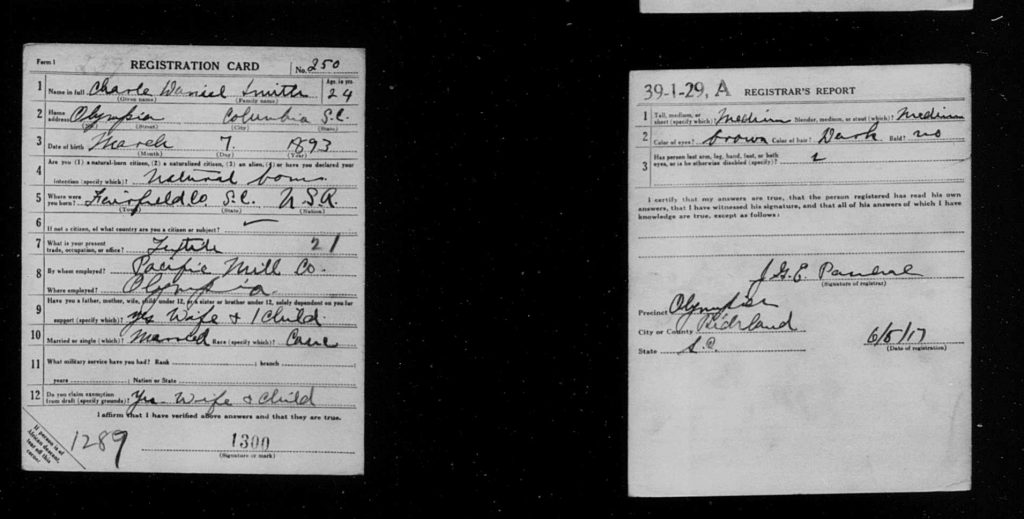 Form 1
REGISTRATION CARD
No. 250
1 Name in full Charle Daniel Smith
(Given name) (Family name)
Age, in yrs. 24
2 Home address Olympia Columbia S.C.
(No.) (Street) (City) (State)
3 Date of birth March 7. 1893
(Month) (Day) (Year)
4 Are you (1) a natural-born citizen, (2) a naturalized citizen, (3) an alien, (4) or have you declared your
intention (specify which)? Natural born
5 Where were you born? Fairfield Co. S.C. U.S.A.
(Town) (State) (Nation)
6 If not a citizen, of what country are you a citizen or subject?
7 What is your present trade, occupation, or office? Textile 21
8 By whom employed? Pacific Mill Co.
Where employed? Olympia
9 Have you a father, mother, wife, child under 12, or a sister or brother under 12, solely dependent on you for
support (specify which)? Yes Wife + 1 Child
10 Married or single (which)? Married Race (specify which)? Cauc
11 What military service have you had? Rank ; branch
years ; Nation or State
12 Do you claim exemption from draft (specify grounds)? Yes Wife + Child
I affirm that I have verified above answers and that they are true.
1300
(Signature or mark)
If person is of
African descent,
tear off this
corner
1289
39-1-29, A REGISTRAR'S REPORT
1 Tall, medium, or short (specify which)? Medium Slender, medium, or stout (which)? Medium
2 Color of eyes? brown Color of hair? Dark Bald? no
3 Has person lost arm, leg, hand, foot, or both
eyes, or is he otherwise disabled (specify)?
I certify that my answers are true, that the person registered has read his own
answers, that I have witnessed his signature, and that all of his answers of which I have
knowledge are true, except as follows:
J.G.E.
(Signature of registrar)
Precinct Olympia
City or County Richland
State S.C.
6/5/17
(Date of registration)